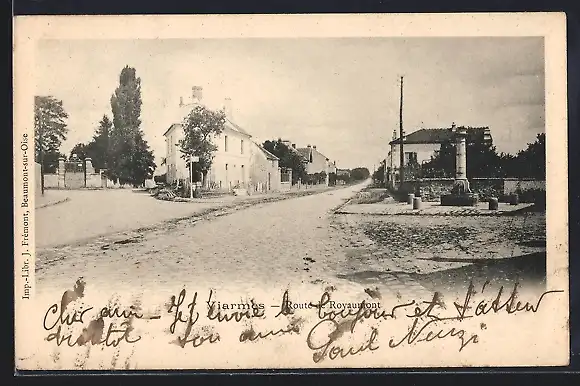 Imp.-Libr. J. Frémont, Beaumont-sur-Oise
Viarmes — Route de Royaumont
Cher ami - Je t'envoie le bonjour et t'attend
bientôt Ton ami Paul